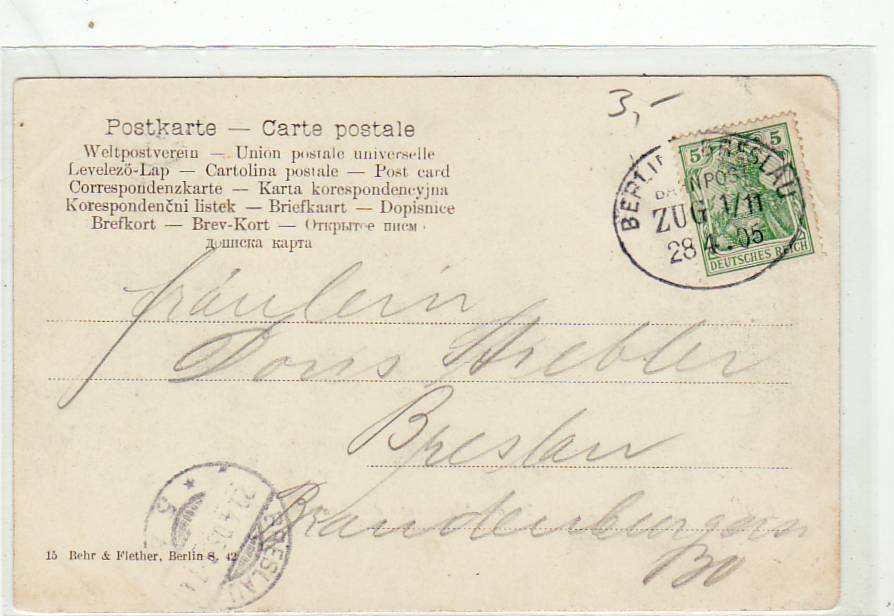 3,-
Postkarte — Carte postale
Weltpostverein — Union postale universelle
Levelezõ-Lap — Cartolina postale — Post card
Correspondenzkarte — Karta korespondencyjna
Korespondenční listek — Briefkaart — Dopisnice
Brefkort — Brev-Kort — Открытое писм
дописка карта
5 5
DEUTSCHES REICH
BERLIN BRESLAU
BAHNPOST
ZUG 1/11
28 4.05
Fräulein
Doris Striebler
Breslau
BRESLAU
15 Behr & Flether, Berlin S. 42